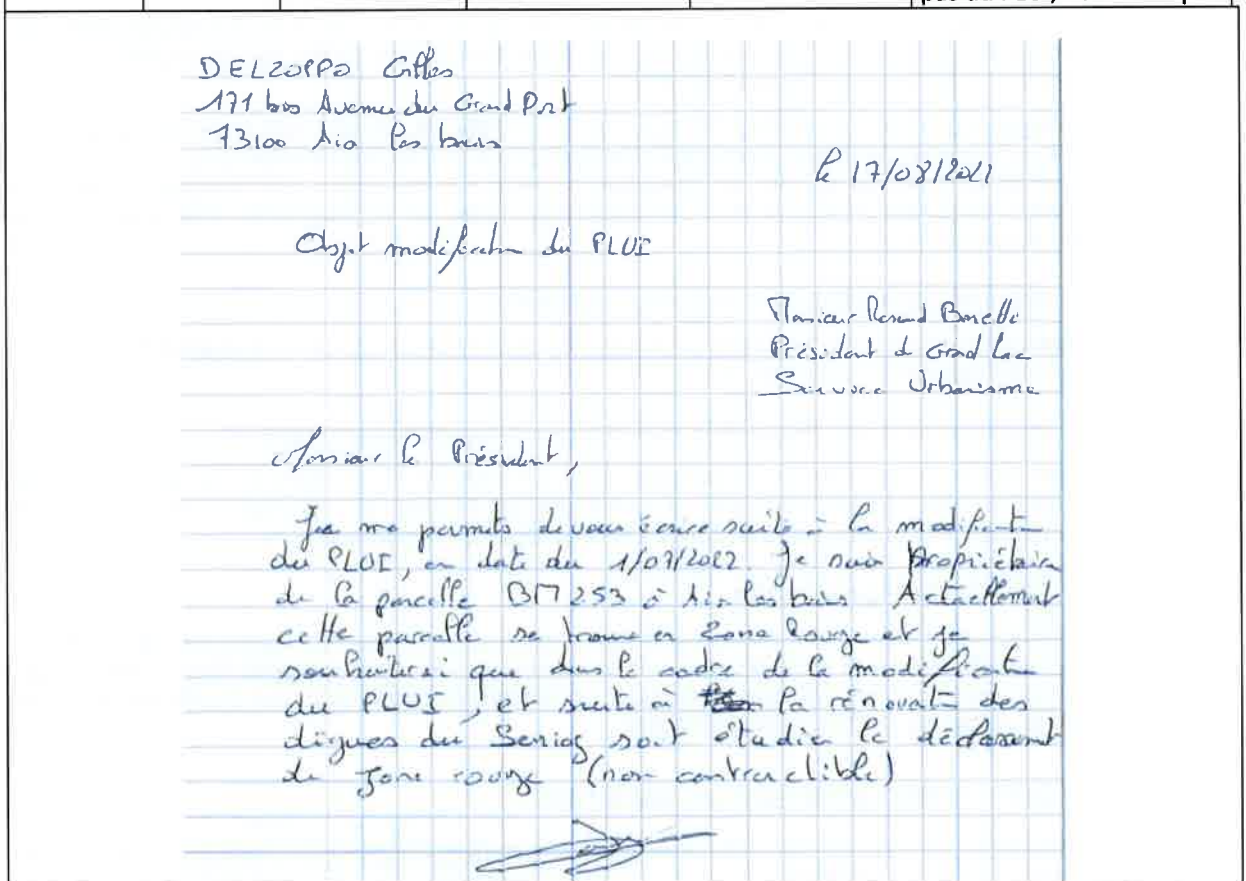 DELZOPPO Gilles
171 bis Avenue du Grand Port
73100 Aix les bains
le 17/08/2022
Objet modification du PLUI
Monsieur Renaud Beretti
Président de Grand Lac
Service Urbanisme
Monsieur le Président,
Je me permets de vous écrire suite à la modification
du PLUI, en date du 1/07/2022. Je suis propriétaire
de la parcelle BM 253 à Aix les bains Actuellement
cette parcelle se trouve en zone Rouge et je
souhaiterai que dans le cadre de la modification
du PLUI, et suite à la rénovation des
digues du soit étudier le déclassement
de zone rouge (non constructible)